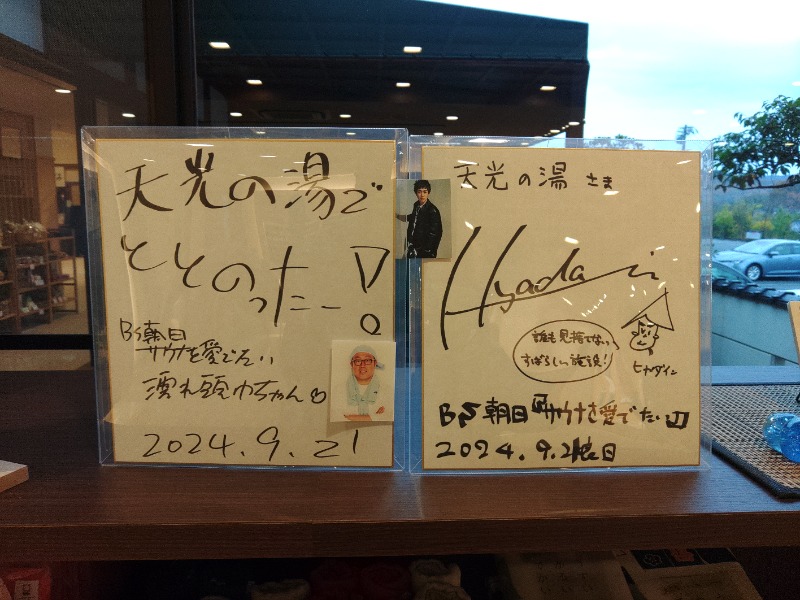 天光の湯で
ととのったー!
BS朝日
サウナを愛でたい
濡れ頭巾ちゃん
2024.9.21
天光の湯 さま
Hyadain
誰も見捨てない
すばらしい施設!!
ヒャダイン
BS朝日『サウナを愛でたい』
2024.9.21 日